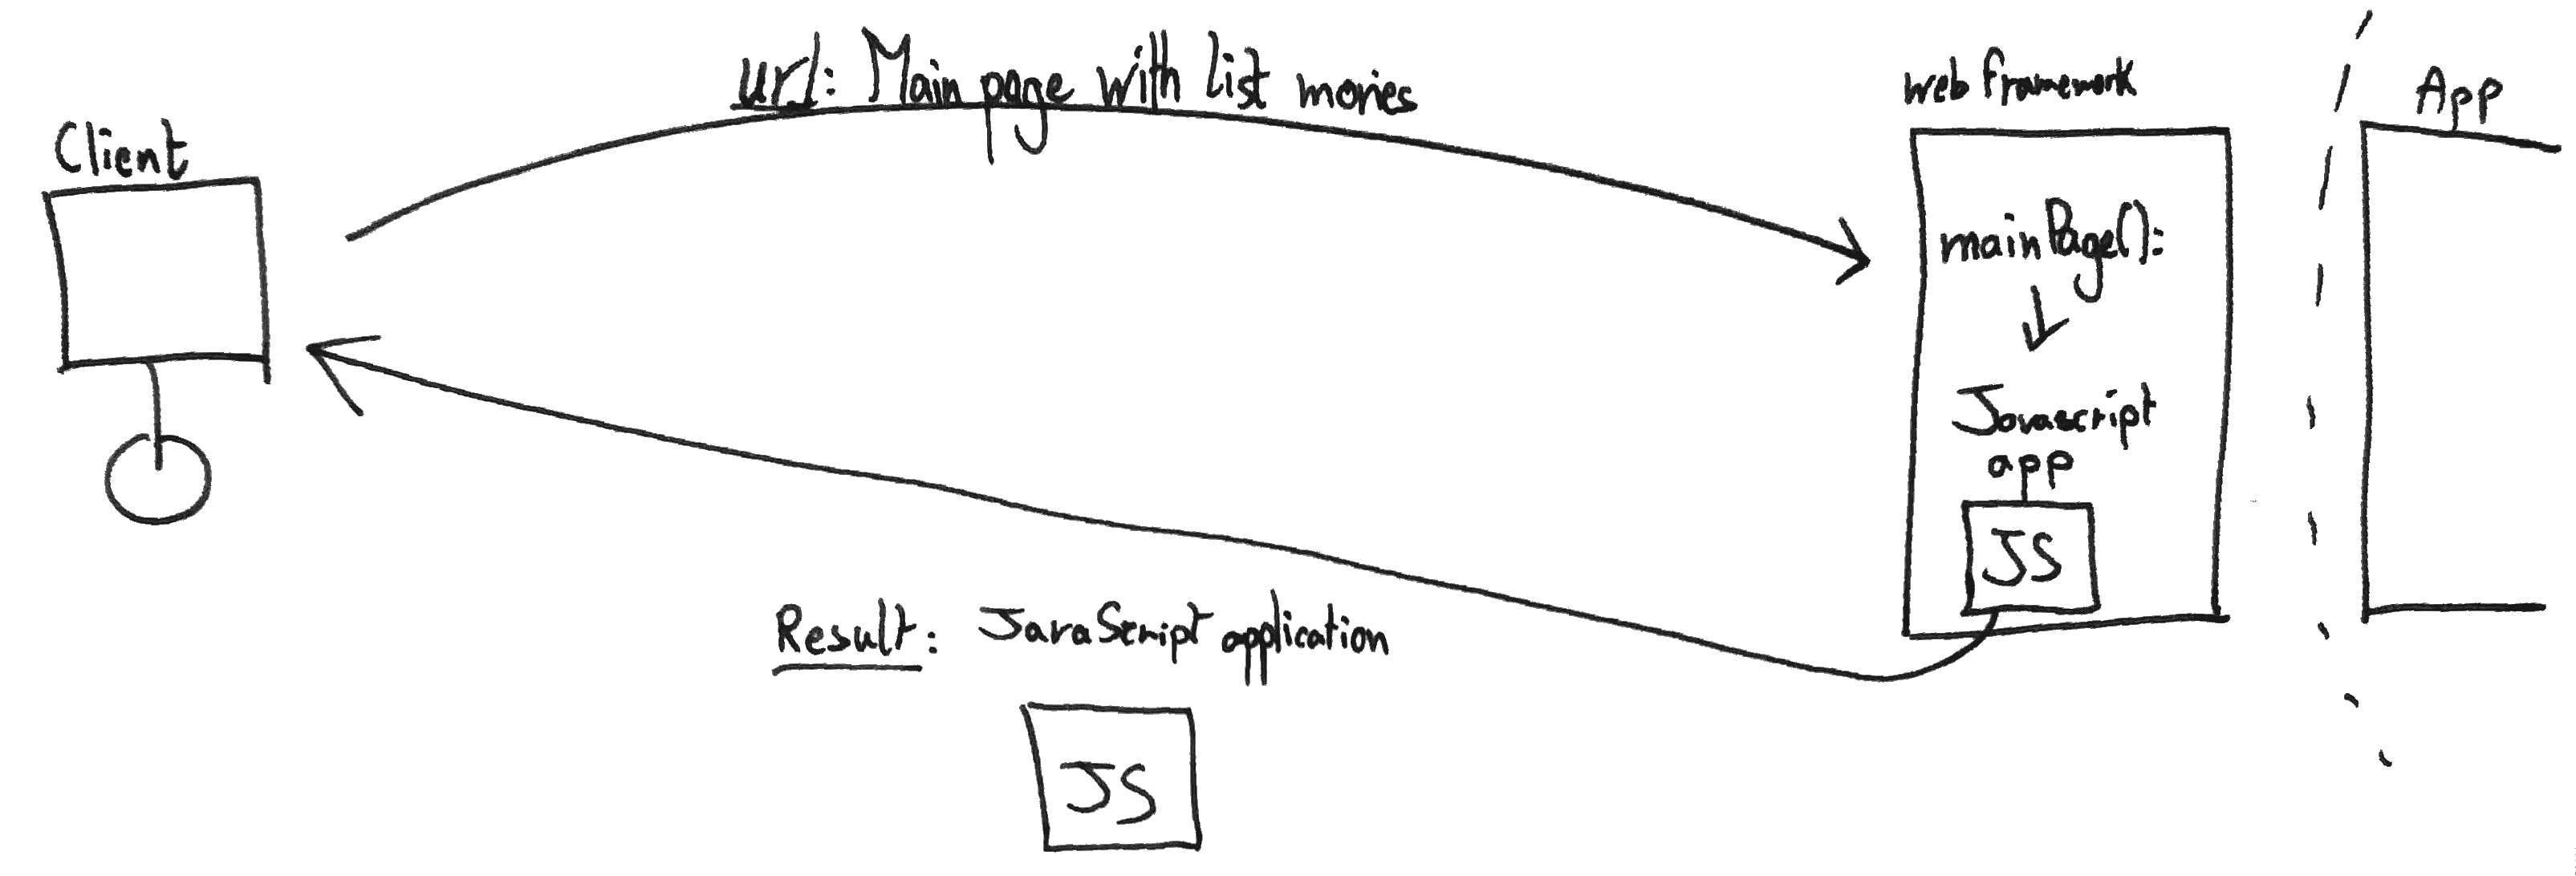 url: Main page with list movies
web framework
App
Client
mainPage():
Javascript
app
JS
Result: JavaScript application
JS